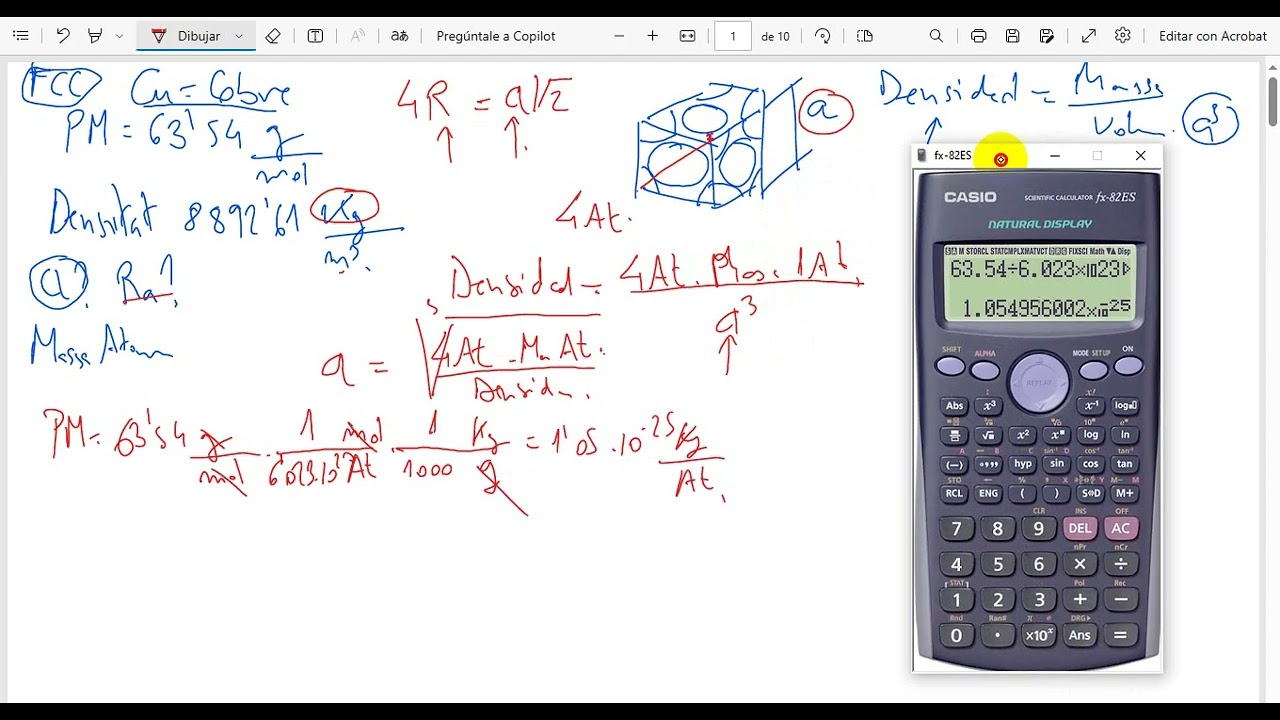 Dibujar
Pregúntale a Copilot
1 de 10
Editar con Acrobat
FCC Cu = Cobre
PM = 63'54 g/mol
Densitat 8892'61 Kg/m³
a? Ra?
Massa Atom
4R = a√2
a
4 At.
Densidad = Massa / Volum. a³
Densidad = 4At. Mas. 1At. / a³
a = ³√(4At. Ma At. / Densida.)
PM = 63'54 g/mol · 1 mol / 6'023·10²³ At · 1 Kg / 1000 g = 1'05·10⁻²⁵ Kg/At.
fx-82ES
CASIO SCIENTIFIC CALCULATOR fx-82ES
NATURAL DISPLAY
S A M STORCL STATCMPLXMATVCT D R G FIXSCI Math ▼▲ Disp
63.54÷6.023×10 23
1.054956002×10-25
SHIFT ALPHA MODE SETUP ON
REPLAY
Abs x³ x⁻¹ log
x² log ln
(−) hyp sin cos tan
STO
RCL ENG ( ) S⇔D M+
CLR INS OFF
7 8 9 DEL AC
nPr nCr
4 5 6 × ÷
STAT Pol Rec
1 2 3 + −
Rnd Ran# π e DRG▸
0 . ×10ˣ Ans =